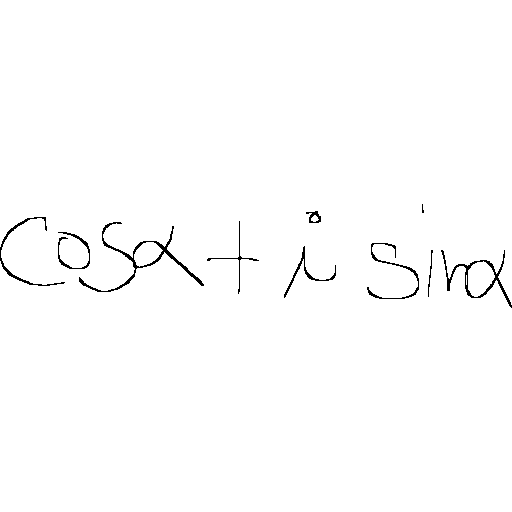 cosα + i sinα